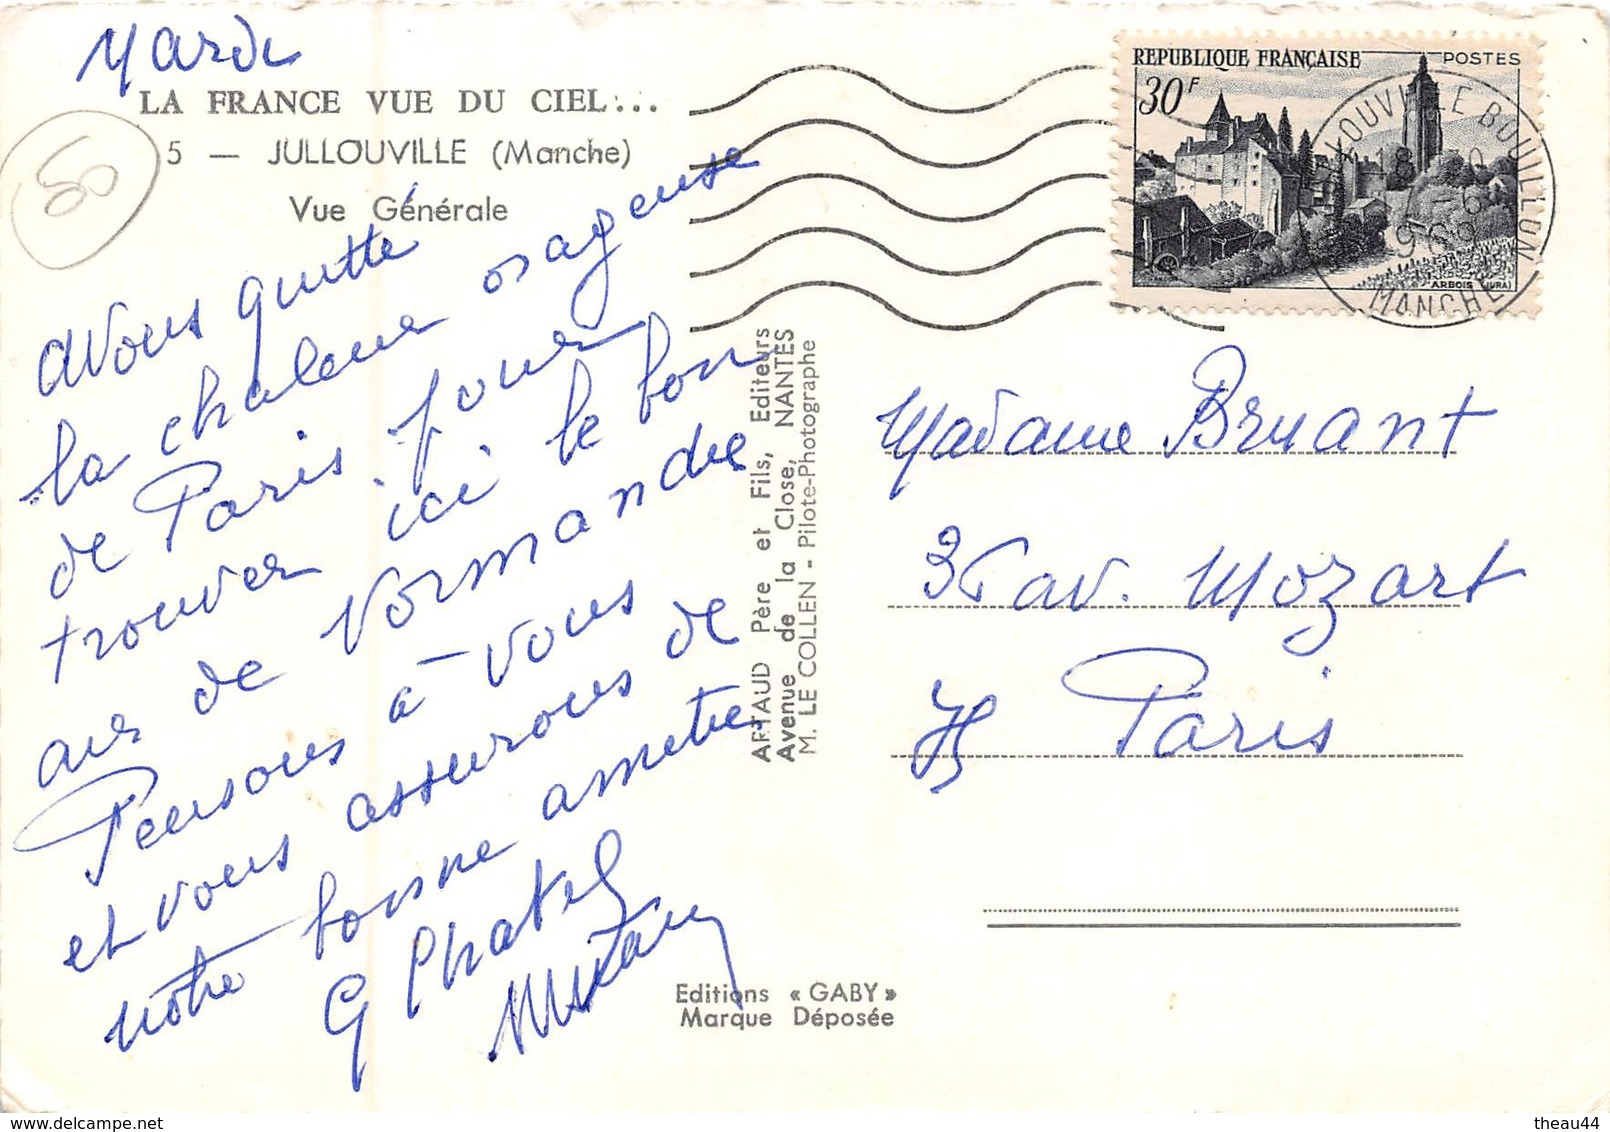 Mardi
LA FRANCE VUE DU CIEL...
50
5 — JULLOUVILLE (Manche)
Vue Générale
avons quitté
la chaleur orageuse
de Paris pour
trouver ici le bon
air de Normandie
Pensons à vous
et vous assurons de
notre bonne amitié
G Chatel
REPUBLIQUE FRANÇAISE
POSTES
30F
ARBOIS (JURA)
JULLOUVILLE BOUILLON
18
-6
196
MANCHE
ARTAUD Père et Fils, Editeurs
Avenue de la Close, NANTES
M. LE COLLEN - Pilote-Photographe
Madame Bruant
av. Mozart
Paris
Editions « GABY »
Marque Déposée
www.delcampe.net
theau44